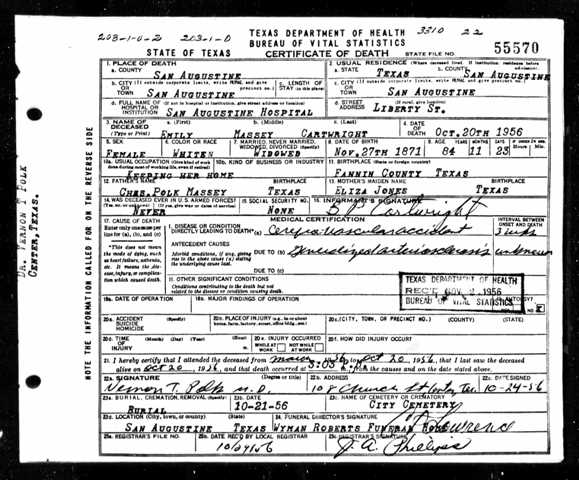 203-1-0-2 203-1-0 TEXAS DEPARTMENT OF HEALTH 3310 22
BUREAU OF VITAL STATISTICS
STATE OF TEXAS CERTIFICATE OF DEATH STATE FILE NO. 55570
1. PLACE OF DEATH 2. USUAL RESIDENCE (Where deceased lived. If institution: residence before admission)
a. COUNTY SAN AUGUSTINE a. STATE TEXAS b. COUNTY SAN AUGUSTINE
b. CITY (If outside corporate limits, write RURAL and give precinct no.) OR TOWN SAN AUGUSTINE c. LENGTH OF STAY (in this place) c. CITY (If outside corporate limits, write RURAL and give precinct no.) OR TOWN SAN AUGUSTINE
d. FULL NAME OF (If not in hospital or institution, give street address or location) HOSPITAL OR INSTITUTION SAN AUGUSTINE HOSPITAL d. STREET ADDRESS (If rural, give location) LIBERTY ST.
3. NAME OF DECEASED (Type or Print) a. (First) EMILY b. (Middle) MASSEY c. (Last) CARTWRIGHT 4. DATE OF DEATH OCT. 20TH 1956
5. SEX FEMALE 6. COLOR OR RACE WHITE 7. MARRIED, NEVER MARRIED, WIDOWED, DIVORCED (Specify) WIDOWED 8. DATE OF BIRTH NOV. 27TH 1871 9. AGE 84 11 23
10a. USUAL OCCUPATION KEEPING HER HOME 10b. KIND OF BUSINESS OR INDUSTRY 11. BIRTHPLACE (State or foreign country) FANNIN COUNTY TEXAS
12. FATHER'S NAME CHAS. POLK MASSEY TEXAS 13. MOTHER'S MAIDEN NAME ELIZA JONES TEXAS
14. WAS DECEASED EVER IN U.S. ARMED FORCES? NEVER 15. SOCIAL SECURITY NO. NONE 16. INFORMANT'S SIGNATURE Cartwright
17. CAUSE OF DEATH MEDICAL CERTIFICATION INTERVAL BETWEEN ONSET AND DEATH
Enter only one cause per line for (a), (b), and (c) I. DISEASE OR CONDITION DIRECTLY LEADING TO DEATH (a) Cerebrovascular accident 3 wks
*This does not mean the mode of dying, such as heart failure, asthenia, etc. It means the disease, injury, or complication which caused death.
ANTECEDENT CAUSES
Morbid conditions, if any, giving rise to the above cause (a) stating the underlying cause last. DUE TO (b) Generalized arteriosclerosis unknown
DUE TO (c)
II. OTHER SIGNIFICANT CONDITIONS
Conditions contributing to the death but not related to the disease or condition causing death.
TEXAS DEPARTMENT OF HEALTH
REC'D NOV 2 1956
BUREAU OF VITAL STATISTICS
18a. DATE OF OPERATION 18b. MAJOR FINDINGS OF OPERATION
20a. ACCIDENT SUICIDE HOMICIDE (Specify) 20b. PLACE OF INJURY (e.g., in or about home, farm, factory, street, office bldg., etc.) 20c. (CITY, TOWN, OR PRECINCT NO.) (COUNTY) (STATE)
20d. TIME OF INJURY (Month) (Day) (Year) (Hour) 20e. INJURY OCCURRED WHILE AT WORK NOT WHILE AT WORK 20f. HOW DID INJURY OCCUR?
21. I hereby certify that I attended the deceased from 1956, to Oct 20 1956, that I last saw the deceased
alive on Oct 20 1956, and that death occurred at from the causes and on the date stated above.
22a. SIGNATURE (Degree or title) Vernon T. Polk M.D. 22b. ADDRESS Church St Center, Tex. 22c. DATE SIGNED 10-24-56
23a. BURIAL, CREMATION, REMOVAL (Specify) BURIAL 23b. DATE 10-21-56 23c. NAME OF CEMETERY OR CREMATORY CITY CEMETERY
23d. LOCATION (City, town, or county) (State) SAN AUGUSTINE TEXAS 24. FUNERAL DIRECTOR'S SIGNATURE WYMAN ROBERTS FUNERAL HOME
25a. REGISTRAR'S FILE NO. 25b. DATE REC'D BY LOCAL REGISTRAR 25c. REGISTRAR'S SIGNATURE J. A. Phillips
DR. VERNON T POLK
CENTER, TEXAS.
NOTE THE INFORMATION CALLED FOR ON THE REVERSE SIDE